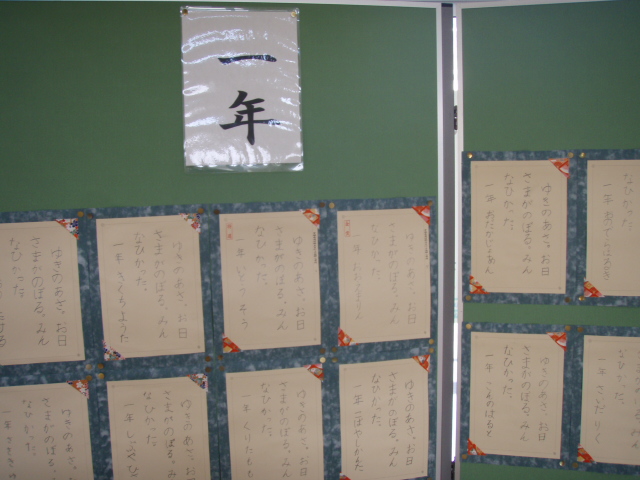 一年
ゆきのあさ、お日
さまがのぼる。みん
なひかった。
ゆきのあさ、お日
さまがのぼる。みん
なひかった。
一年
ゆきのあさ、お日
さまがのぼる。みん
なひかった。
一年 いとう そう
ゆきのあさ、お日
さまがのぼる。みん
なひかった。
一年
ゆきのあさ、お日
さまがのぼる。みん
なひかった。
一年
ゆきのあさ、お
さまがのぼる。み
なひかった。
一年 しぶや ひ
ゆきのあさ、お日
さまがのぼる。みん
なひかった。
一年 くりた もも
ゆきのあさ、お日
さまがのぼる。みん
なひかった。
一年 こばやしかんた
ゆきのあさ、お日
さまがのぼる。みん
なひかった。
一年
なひかった。
一年
ゆきのあさ、お日
さまがのぼる。みん
なひかった。
一年
一年 さいだ りく